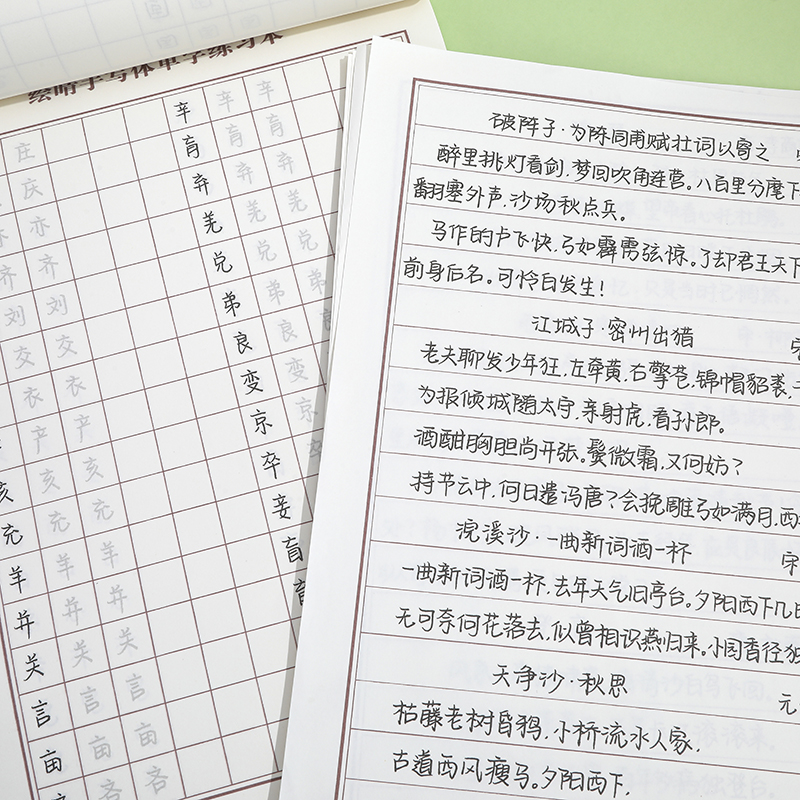 绘晴手写体单字练习本
庄 庄 辛 辛 辛
庆 庆 肓 肓 肓
亦 亦 弃 弃 弃
齐 齐 羌 羌 羌
刘 刘 兑 兑 兑
交 交 弟 弟 弟
衣 衣 良 良
产 产 变 变
亥 亥 亥 京 京
充 充 充 卒 卒
羊 羊 羊 妾
并 并 并 盲
关 关 关
言 言 言
亩 亩 亩
吝 吝
破阵子·为陈同甫赋壮词以寄之
醉里挑灯看剑,梦回吹角连营。八百里分麾下
翻塞外声,沙场秋点兵。
马作的卢飞快,弓如霹雳弦惊。了却君王天下
前身后名。可怜白发生!
江城子·密州出猎 宋
老夫聊发少年狂,左牵黄,右擎苍,锦帽貂裘,
为报倾城随太守,亲射虎,看孙郎。
酒酣胸胆尚开张。鬓微霜,又何妨?
持节云中,何日遣冯唐?会挽雕弓如满月,西
浣溪沙·一曲新词酒一杯 宋
一曲新词酒一杯,去年天气旧亭台。夕阳西下几
无可奈何花落去,似曾相识燕归来。小园香径独
天净沙·秋思 元
枯藤老树昏鸦,小桥流水人家,
古道西风瘦马。夕阳西下,